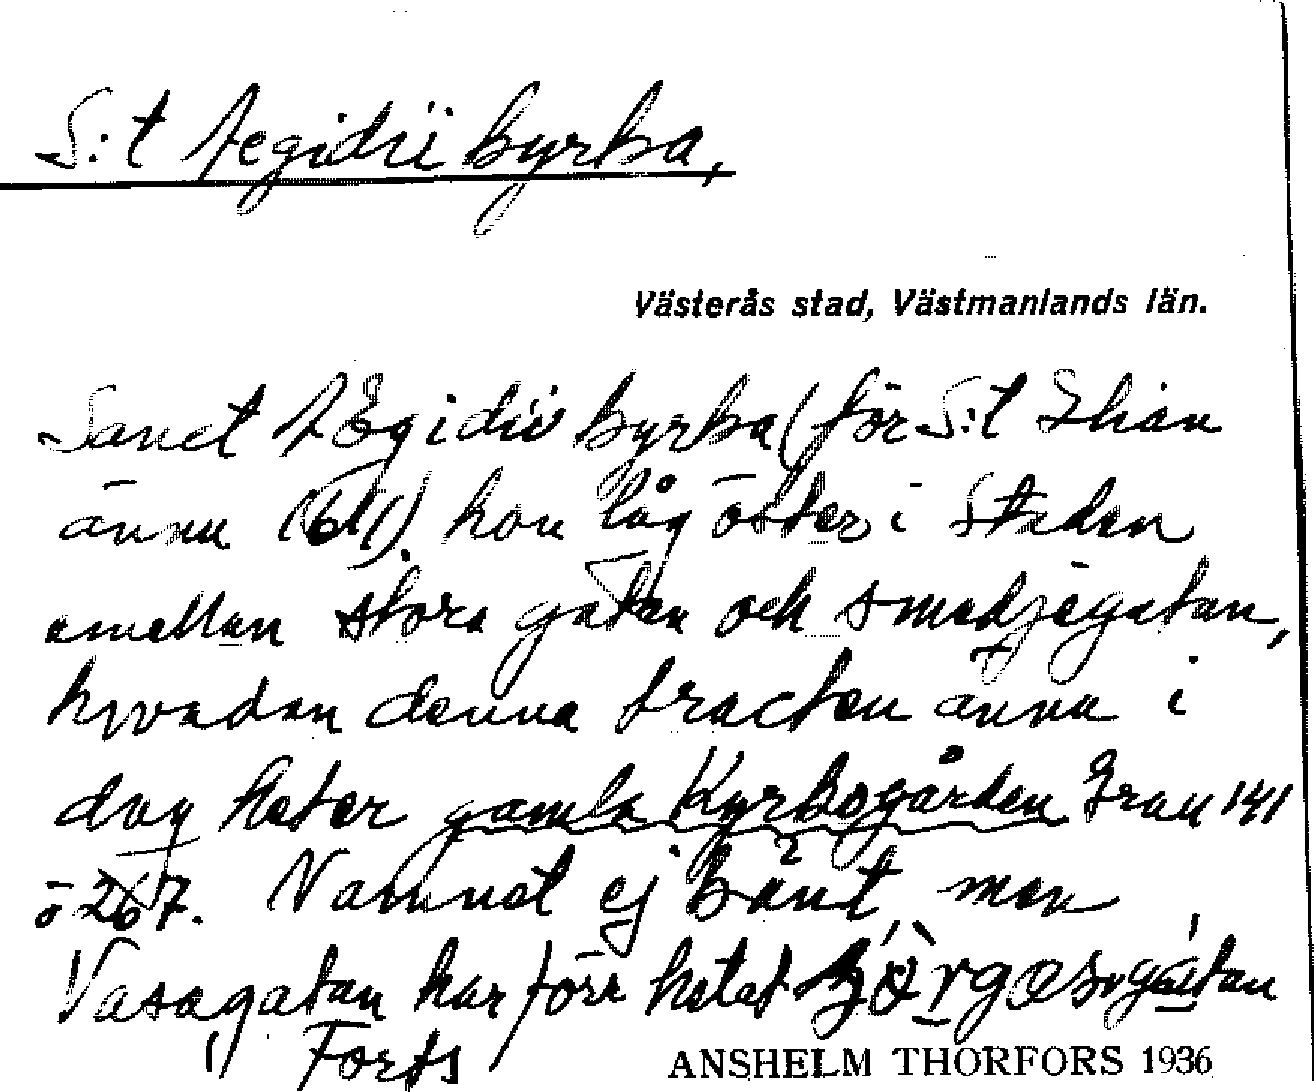 S:t Aegidii kyrka,
Västerås stad, Västmanlands län.
Sanct Ægidii kyrka (för S:t Ilian
ännu 1611). hon låg öster i Staden
emellan stora gatan och smedjegatan,
hvadan denna tracten ännu i
dag heter gamla Kyrkogården Grau 141
o 267. Namnet ej känt, men
Vasagatan har förr hetat
Forts
ANSHELM THORFORS 1936